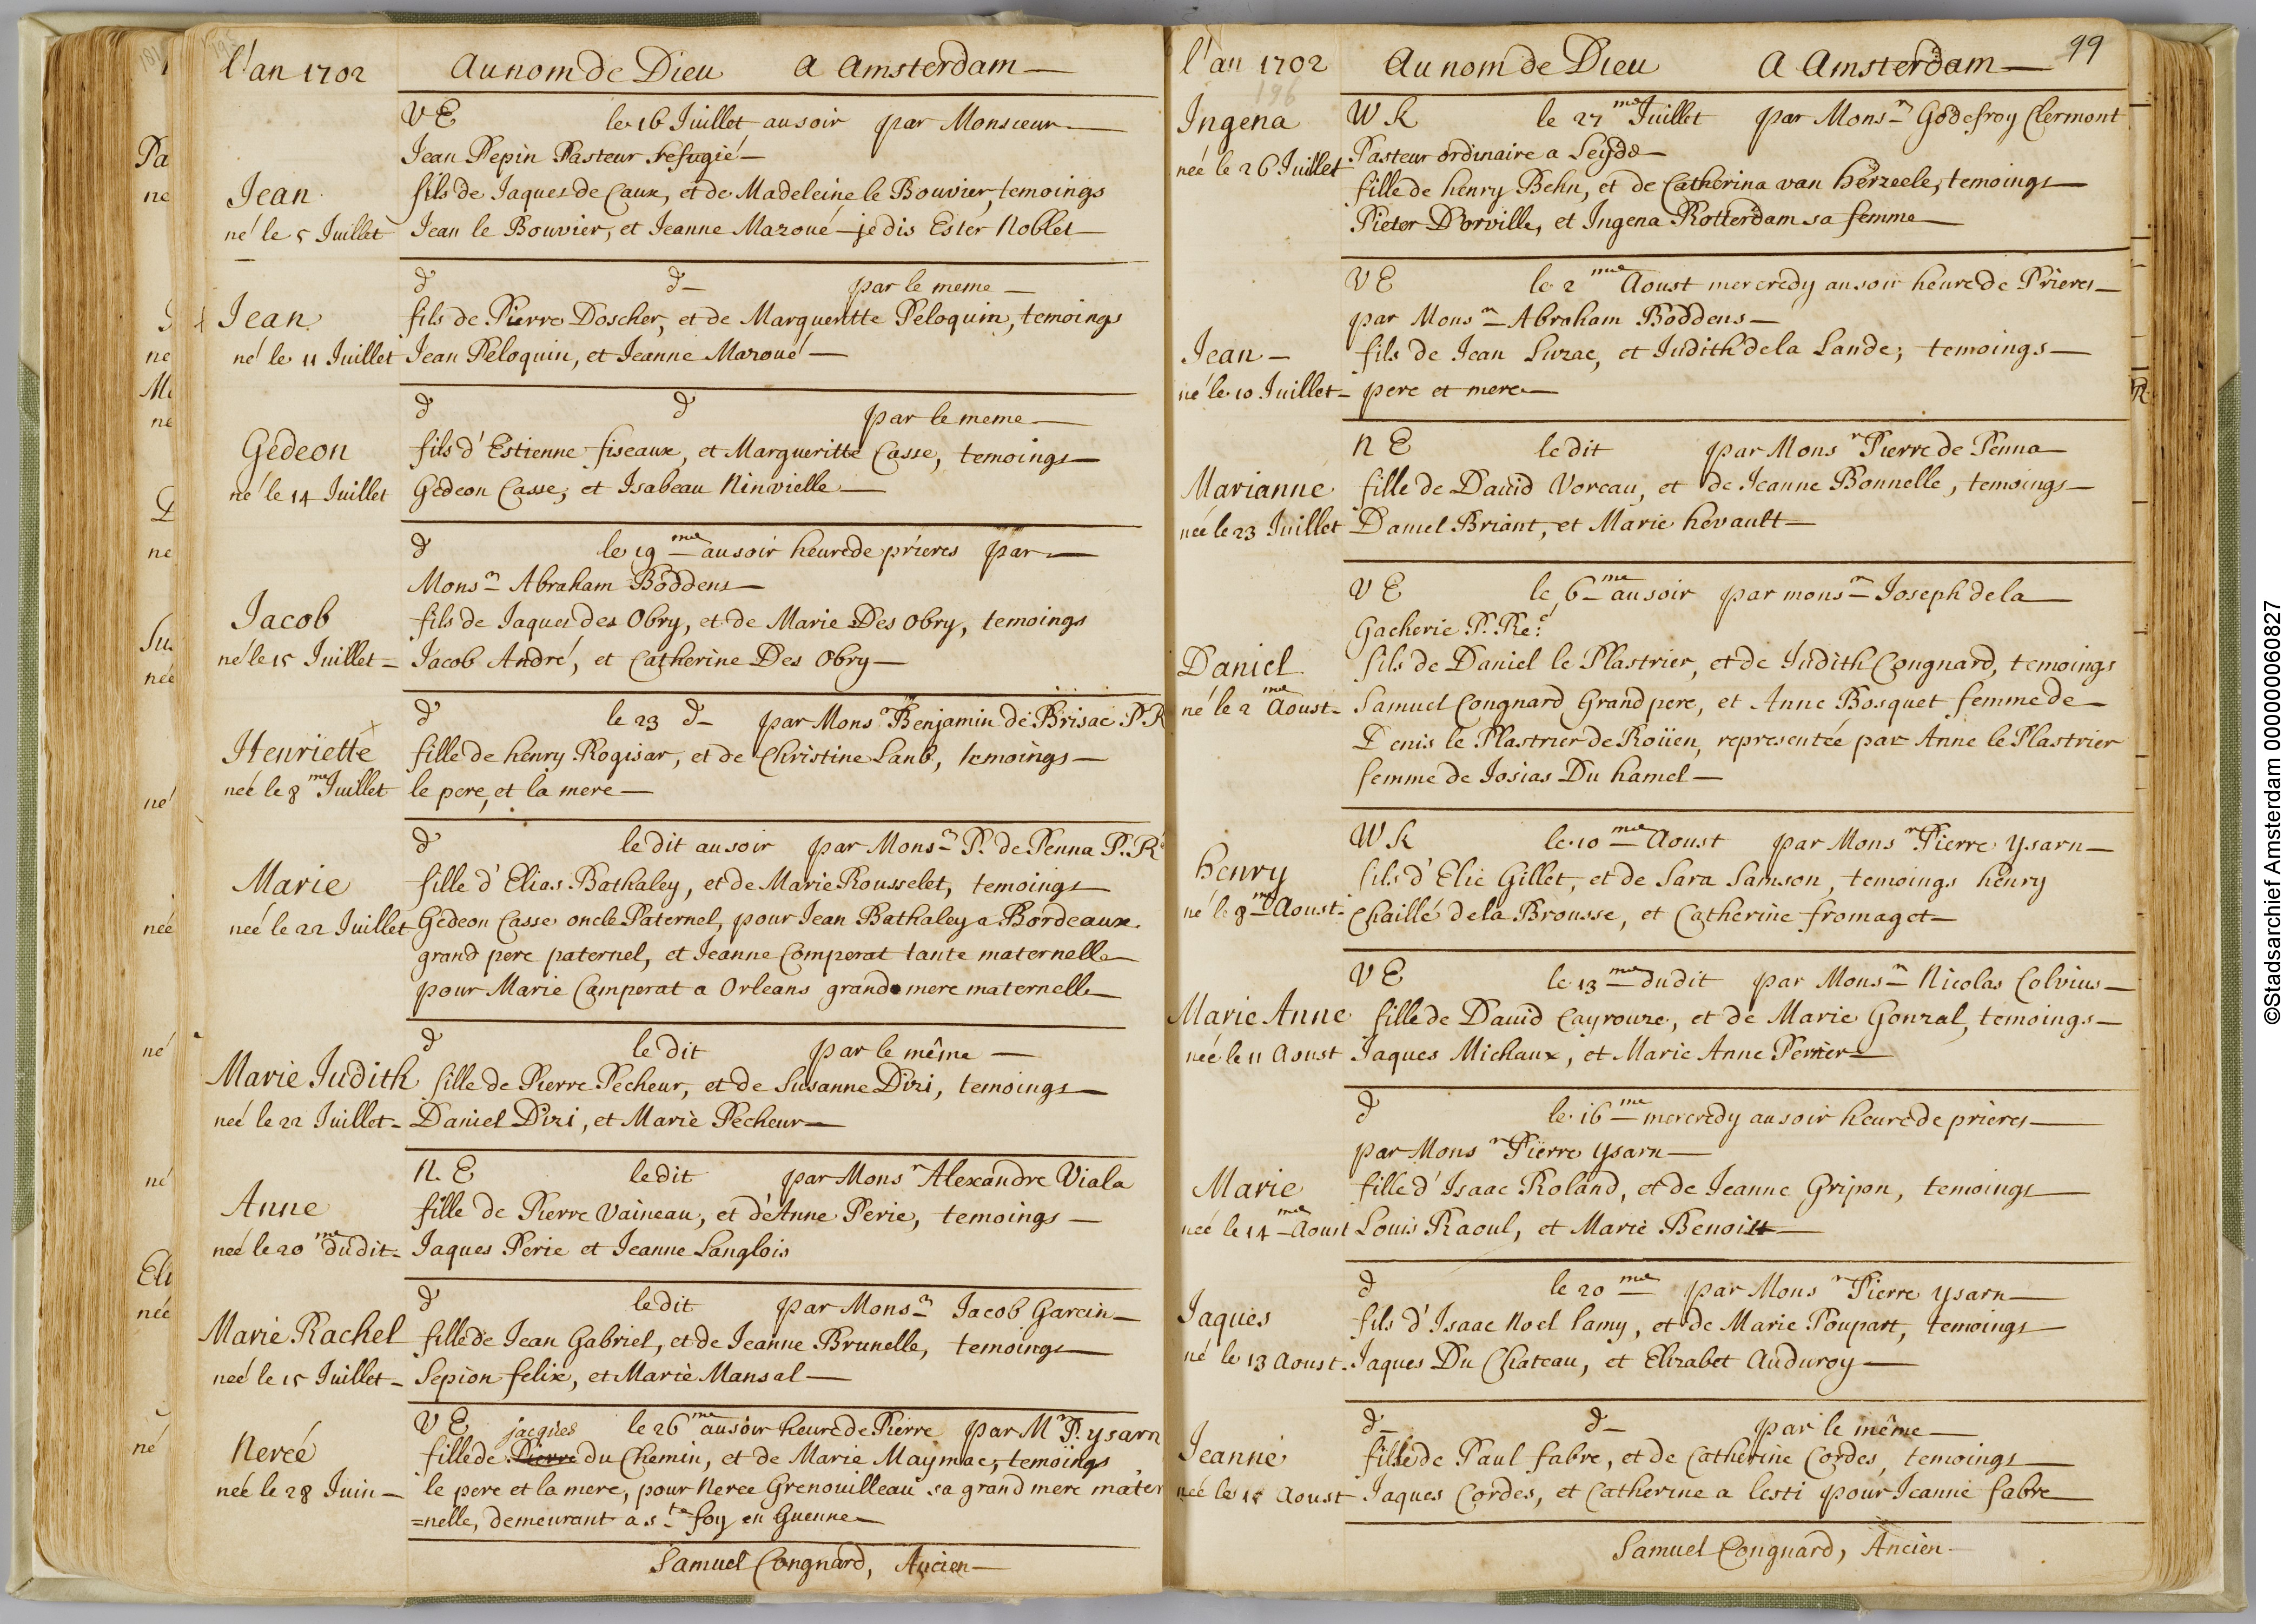 l'an 1702 Au nom de Dieu A Amsterdam
VE le 16 Juillet au soir par Monsieur
Jean Pepin Pasteur refugié
Jean fils de Jaques de Caux, et de Madeleine le Bouvier, temoings
né le 5 Juillet Jean le Bouvier, et Jeanne Mazoué je dis Ester Noblet
d d par le meme
Jean fils de Pierre Doscher, et de Margueritte Peloquin, temoings
né le 11 Juillet Jean Peloquin, et Jeanne Mazoué
d d par le meme
Gedeon fils d'Estienne fiseaux, et Margueritte Casse, temoings
né le 14 Juillet Gedeon Casse, et Isabeau Ninvielle
d le 19 me au soir heure de prieres par
Monsr Abraham Boddens
Jacob fils de Jaques des Obry, et de Marie Des Obry, temoings
né le 15 Juillet Jacob André, et Catherine Des Obry
d le 23 d par Monsr Benjamin de Brisac P. R
Henriette fille de henry Rogisar, et de Christine Laub, temoings
neé le 8 me Juillet le pere, et la mere
d le dit au soir par Monsr P. de Penna P. R
Marie fille d'Elias Bathaley, et de Marie Rousselet, temoings
neé le 22 Juillet Gedeon Casse oncle Paternel, pour Jean Bathaley a Bordeaux
grand pere paternel, et Jeanne Comperat tante maternelle
pour Marie Camperat a Orleans grand mere maternelle
d le dit par le même
Marie Judith fille de Pierre Pecheur, et de Susanne Dizi, temoings
neé le 22 Juillet Daniel Dizi, et Marie Pecheur
N. E le dit par Monsr Alexandre Viala
Anne fille de Pierre Vaineau, et d'Anne Perie, temoings
neé le 20 me dudit Jaques Perie et Jeanne Langlois
d le dit par Monsr Jacob Garcin
Marie Rachel fille de Jean Gabriel, et de Jeanne Brunelle, temoings
neé le 15 Juillet Sepion felix, et Marie Mansal
VE le 26 me au soir heure de Pierre par Mr P. ysarn
jacques
Nercé fille de Pierre du Chemin, et de Marie Maymac, temoings
neé le 28 Juin le pere et la mere, pour Nerce Grenouilleau sa grand mere mater
=nelle, demeurant a Ste foy en Guenne
Samuel Congnard, Ancien
l'an 1702 Au nom de Dieu A Amsterdam 99
196
Ingena WK le 27 me Juillet par Monsr Godefroy Clermont
neé le 26 Juillet Pasteur ordinaire a Leyde
fille de henry Behn, et de Catherina van herzeele, temoings
Pieter D'orville, et Ingena Rotterdam sa femme
VE le 2 me Aoust mercredy au soir heure de Prieres
par Monsr Abraham Boddens
Jean fils de Jean Luzac, et Judith de la Lande; temoings
né le 10 Juillet pere et mere
N E le dit par Monsr Pierre de Penna
Marianne fille de David Voreau, et de Jeanne Bonnelle, temoings
neé le 23 Juillet Daniel Briant, et Marie hevault
VE le 6 me au soir par monsr Joseph de la
Gacherie P. Re:
Daniel fils de Daniel le Plastrier, et de Judith Congnard, temoings
né le 2 me Aoust Samuel Congnard Grand pere, et Anne Bosquet femme de
Denis le Plastrier de Roüen, representée par Anne le Plastrier
femme de Josias Du hamel
WK le 10 me Aoust par Monsr Pierre ysarn
henry fils d'Elie Gillet, et de Sara Samson, temoings henry
né le 8 me Aoust Chaillé de la Brousse, et Catherine fromaget
VE le 13 me dudit par Monsr Nicolas Colvius
Marie Anne fille de David Cayrouze, et de Marie Gonzal, temoings
neé le 11 Aoust Jaques Michaux, et Marie Anne Perrier
d le 16 me mercredy au soir heure de prieres
par Monsr Pierre ysarn
Marie fille d'Isaac Roland, et de Jeanne Gripon, temoings
neé le 14 me Aoust Louis Raoul, et Marie Benoist
d le 20 me par Monsr Pierre ysarn
Jaques fils d'Isaac Noel lamy, et de Marie Poupart, temoings
né le 13 Aoust Jaques Du Chateau, et Elizabet Auduroy
d d par le même
Jeanne fille de Paul fabre, et de Catherine Cordes, temoings
neé le 15 Aoust Jaques Cordes, et Catherine a lesti pour Jeanne fabre
Samuel Congnard, Ancien
©Stadsarchief Amsterdam 000000060827